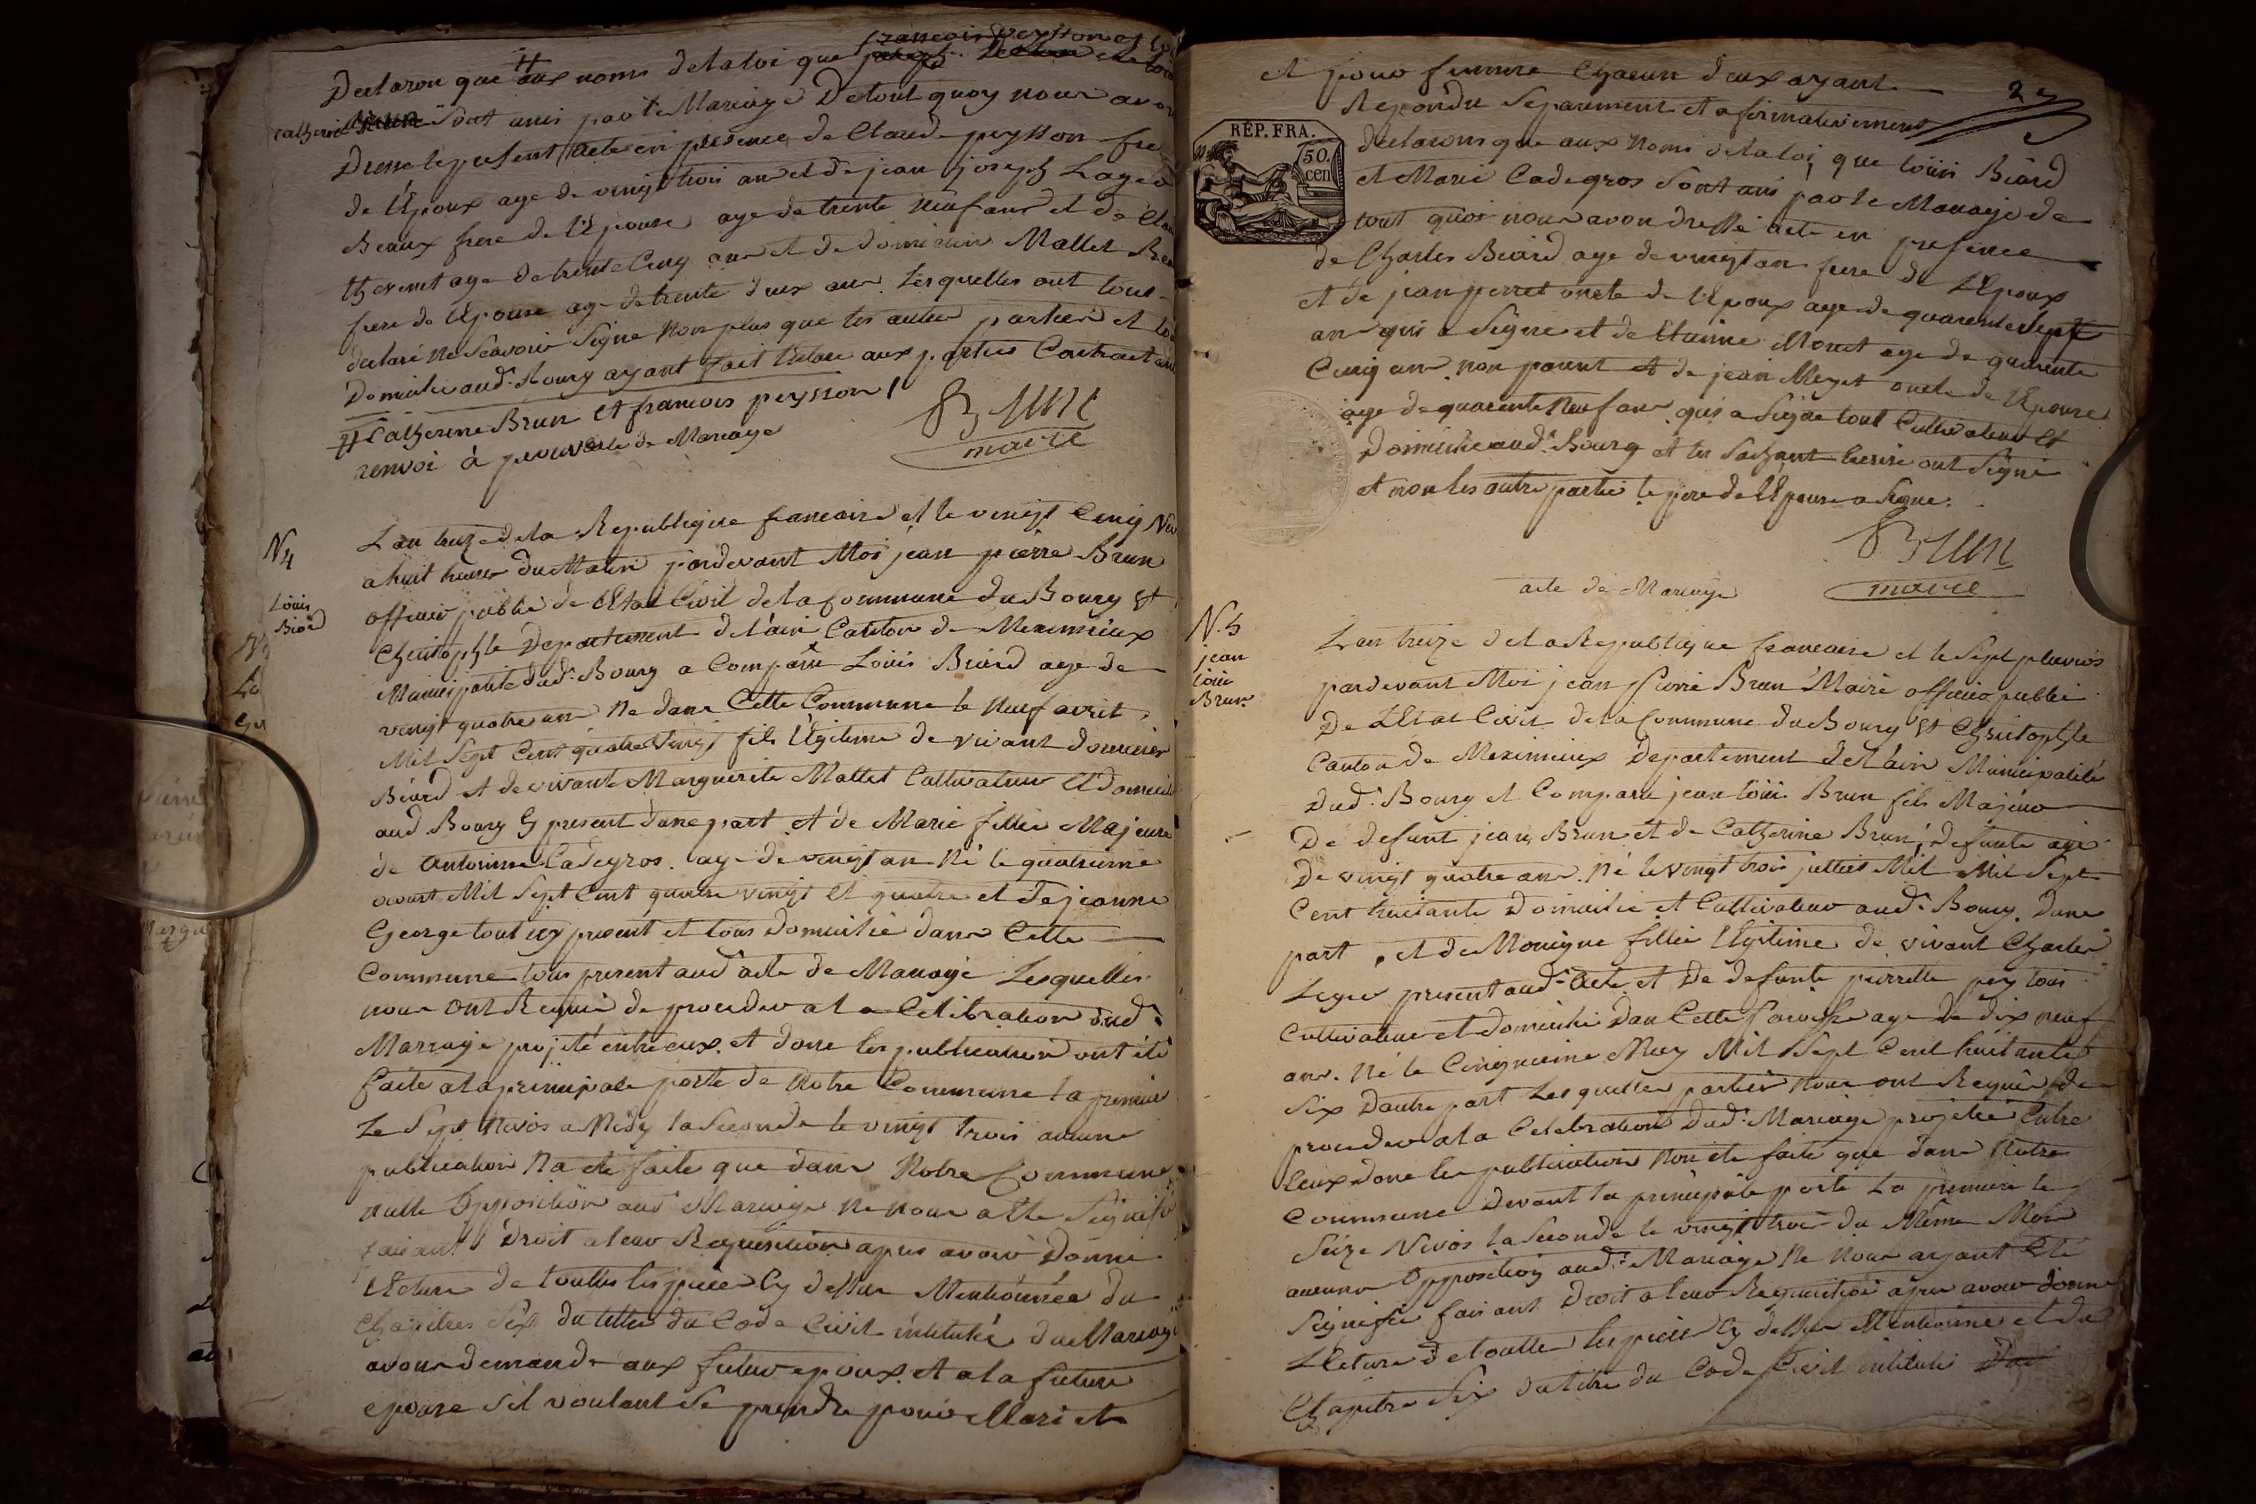 françois peysson et
Declaron que # aux noms de la loi que
catherine Brun sont unis par le Mariage De tout quoy nous avon
Dressé le present acte en presence de Claude peysson fre
de l'Epoux age de vingt trois an et de jean joseph Lager
Beaux frere de l'Epouse age de trente neuf ans et de
thevenet age de trente Cinq ans et de domicien Mallet Beau
frere de l'Epouse age de trente deux ans Lesquelles ont tous
declaré ne Scavoir Signe Non plus que les autres parties et tous
Domicilié aud. Bourg ayant fait lecture aux parties Contractant
# Catherine Brun et francois peysson /
renvoi à prouver de Mariage
Brun
maire
N 4
Louis
Biard
L an treize de la Republique francaise et le vingt Cinq Niv
a huit heures du Matin pardevant Moi jean pierre Brun
officier public de l'Etat Civil de la Commune du Bourg St
Christophle Departement de l'ain Canton de Meximieux
Municipalité dud. Bourg a Comparu Louis Biard age de
vingt quatre an Né dans Cette Commune le Neuf avril
Mil Sept Cent quatre vingt fils légitime de vivant
Biard et de vivante Marguerite Mallet Cultivateur et domicilié
aud Bourg Cy present dune part et de Marie fillie Majeure
de Antoinne Cadegros age de vingt an Né le quatrieme
aoust Mil Sept Cent quatre vingt et quatre et de jeanne
George tout icy present et tous Domicilié dans Cette
Commune tous present aud acte de Mariage Lesquelles
nous ont Requis de proceder a la Celebration dud.
Marriage projeté entre eux et donc les publication ont été
faite a la principale porte de Notre Commune la premier
Le Sept Nivos a Midy la Seconde le vingt trois aucune
publication Na eté faite que dans Notre Commune
nulle Opposition aud Mariage Ne nous a ete Signifié
faisant Droit a leur Requisition apres avoir Donné
Lecture de touttes les pieces Cy dessus Mentionnée du
Chapitres Six du tittre du Code Civil intitulé du Mariage
avons demandé aux futur epoux et a la future
epouse sil voulant se prendre pour Mari et
et pour femme Chacun deux ayant
Repondu Separement et afirmativement
REP. FRA.
50.
cen
declarons que aux noms de la loi que Louis Biard
et Marie Cadegros sont unis par le Mariage de
tout quoi nous avon dressé acte en presence
de Charles Biard age de vingt an frere de l'Epoux
et de jean perret oncle de l'Epoux age de quarente Sept
an qui a Signe et de Etienne Monet age de quarente
Cinq an non parent et de jean Meyet oncle de l'Epouse
age de quarente Neuf an qui a Signe tout Cultivateur et
Domicilié aud. Bourg et les Sachant Ecrire ont Signé
et non les autre partie le pere de l'Epouse a Signe.
Brun
maire
acte de Mariage
N. 5
jean
Louis
Brun
L an treize de la Republique francaise et le Sept pluvios
pardevant Moi jean pierre Brun Maire officier public
De l'Etat Civil de la Commune du Bourg St Christophle
Canton de Meximieux Departement de l'ain Municipalité
Dud. Bourg et Comparu jean Louis Brun fils Majeur
De defunt jean Brun et de Catherine Brun, defunte age
De vingt quatre ans Né le vingt trois juillet Mil Mil Sept
Cent huitante Domicilié et Cultivateur aud. Bourg Dune
part, et de Monique fillie légitime de vivant Charles
Leger present aud. acte et De defunte pierrette
Cultivateur et domicilié Dan Cette paroisse age de dix neuf
ans Né le Cinquieme May Mil Sept Cent huitante
Six Dautre part Lesquelles parties Nous ont Requis de
proceder a la Celebration Dud. Mariage projetté Entre
Eux donc les publication Non ete faite que dans Notre
Commune Devant la principale porte La premiere le
Seize Nivos la Seconde le vingt trois du Meme Mois
aucune Opposition aud. Mariage Ne Nous ayant Eté
Signifié faisant Droit a leur Requisition apres avoir donné
Lecture de toutte les pieces Cy dessus Mentionné et du
Chapitre Six du titre du Code Civil intitulé